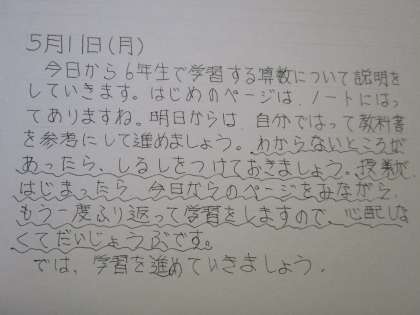 5月11日(月)
今日から6年生で学習する算数について説明を
していきます。はじめのページは、ノートにはっ
てありますね。明日からは、自分ではって教科書
を参考にして進めましょう。わからないところが
あったら、しるしをつけておきましょう。授業が
はじまったら、今日からのページをみながら、
もう一度ふり返って学習をしますので、心配しな
くてだいじょうぶです。
では、学習を進めていきましょう。